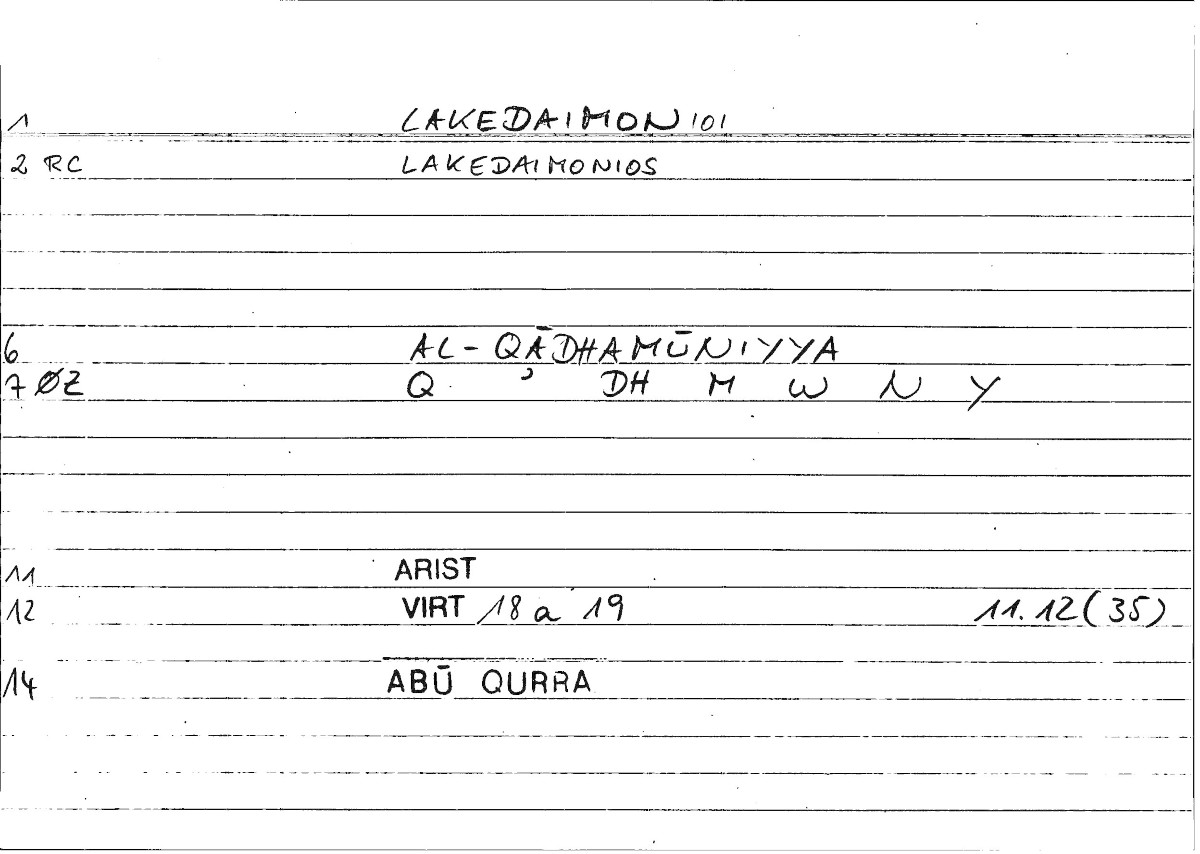 1 LAKEDAIMONIOI
2 RC LAKEDAIMONIOS
6 AL-QĀDHAMŪNIYYA
7 ØZ Q ʾ DH M W N Y
11 ARIST
12 VIRT 18 a 19 11.12(35)
14 ABŪ QURRA